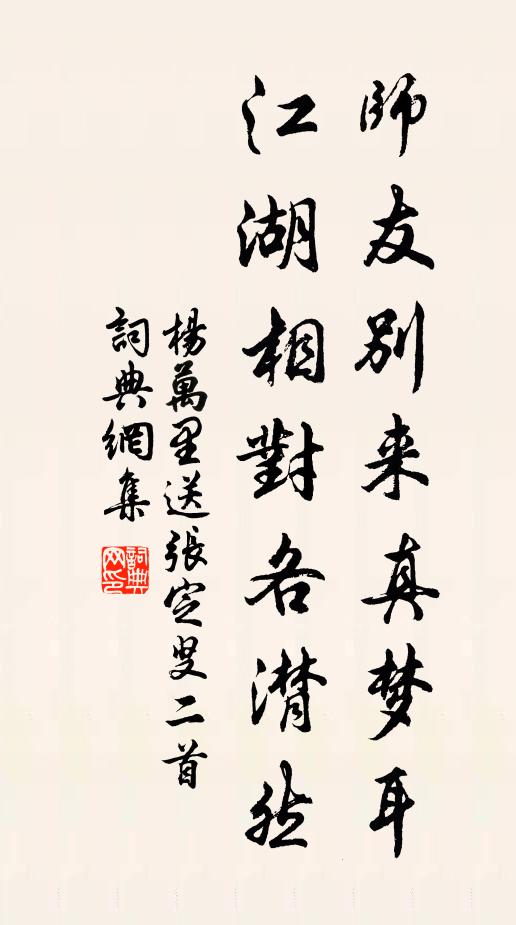 師友别来真梦耳
江湖相對各潸然
楊萬里送張定叟二首
詞典網集
詞典网印